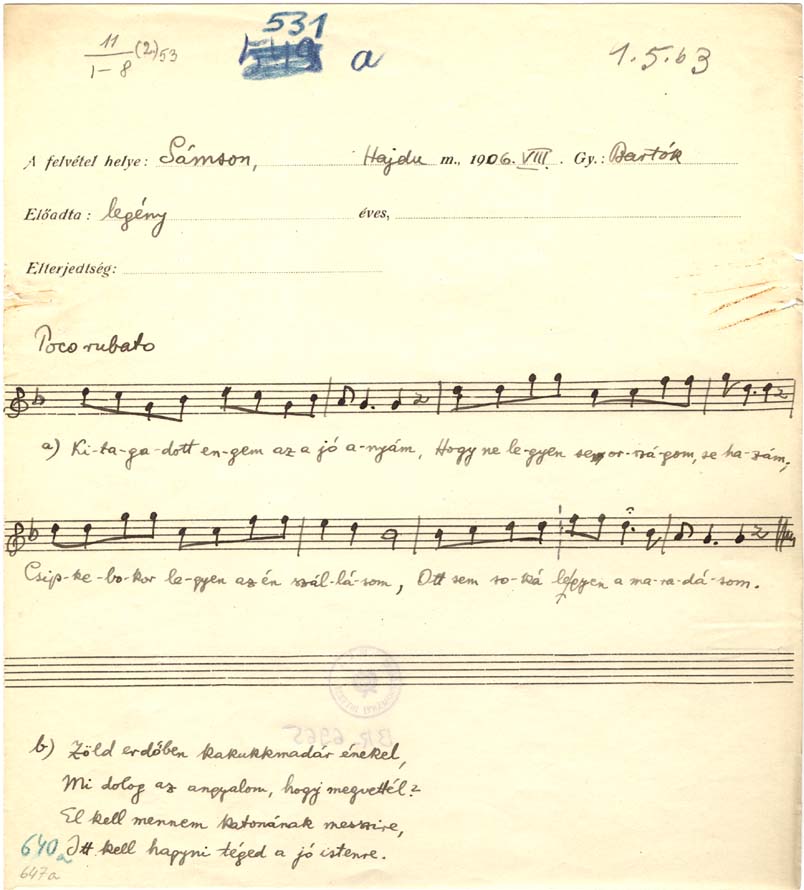 531
11 (2) 53
1-8
a
1.5.63
A felvétel helye: Sámson, Hajdu m., 1906. VIII. Gy.: Bartók
Előadta: legény éves,
Elterjedtség:
Poco rubato
a) Ki-ta-ga-dott en-gem az a jó a-nyám, Hogy ne le-gyen se or-szá-gom, se ha-zám;
Csip-ke-bo-kor le-gyen az én szál-lá-som, Ott sem so-ká légyen a ma-ra-dá-som.
BR 6965
b) Zöld erdőben kakukkmadár énekel,
Mi dolog az angyalom, hogy megvettél?
El kell mennem katonának messzire,
640a Itt kell hagyni téged a jó istenre.
647a